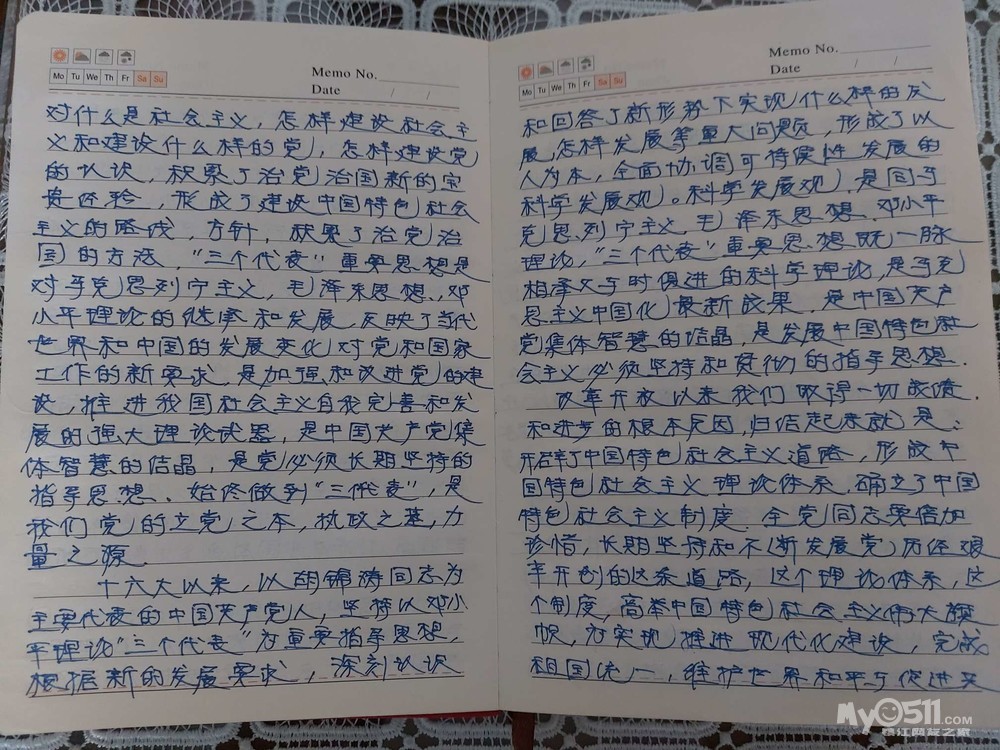 Memo No.
Mo Tu We Th Fr Sa Su
Date / /
对什么是社会主义，怎样建设社会主
义和建设什么样的党，怎样建设党
的认识，积累了治党治国新的宝
贵经验，形成了建设中国特色社会
主义的路线，方针，积累了治党治
国的方法，"三个代表"重要思想是
对马克思列宁主义，毛泽东思想、邓
小平理论的继承和发展，反映了当代
世界和中国的发展变化对党和国家
工作的新要求，是加强和改进党的建
设，推进我国社会主义自我完善和发
展的强大理论武器，是中国共产党集
体智慧的结晶，是党必须长期坚持的
指导思想、始终做到"三个代表"，是
我们党的立党之本，执政之基，力
量之源.
十六大以来，以胡锦涛同志为
主要代表的中国共产党人，坚持以邓小
平理论"三个代表"为重要指导思想，
根据新的发展要求，深刻认识
Memo No.
Mo Tu We Th Fr Sa Su
Date / /
和回答了新形势下实现什么样的发
展，怎样发展等重大问题，形成了以
人为本，全面协调可持续性发展的
科学发展观。科学发展观，是同马
克思、列宁主义，毛泽东思想、邓小平
理论，"三个代表"重要思想既一脉
相承又与时俱进的科学理论，是马克
思主义中国化最新成果，是中国共产
党集体智慧的结晶，是发展中国特色社
会主义必须坚持和贯彻的指导思想.
改革开放以来我们取得一切成绩.
和进步的根本原因，归结起来就是：
开辟了中国特色社会主义道路，形成中
国特色社会主义理论体系.确立了中国
特色社会主义制度.全党同志要倍加
珍惜，长期坚持和不断发展党历经艰
辛开创的这条道路，这个理论体系，这
个制度，高举中国特色社会主义伟大旗
帜，为实现推进现代化建设，完成
祖国统一，维护世界和平与促进共
My0511.com
镇江网友之家